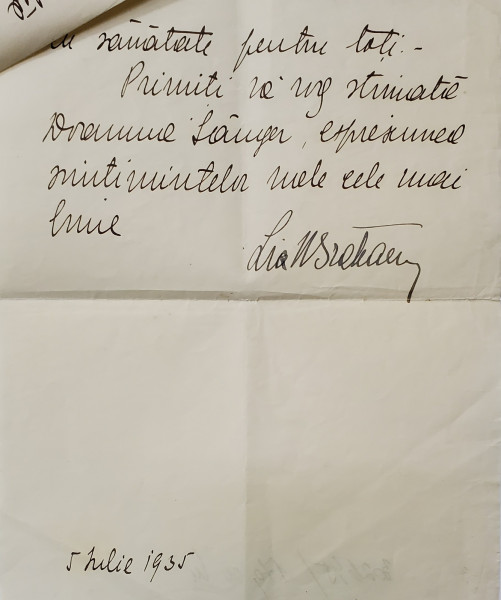 sănătate pentru toți.-
Primiti vă rog stimată
Doamnă Sänger, expresiunea
simtimintelor mele cele mai
bune
Lia
5 Iulie 1935